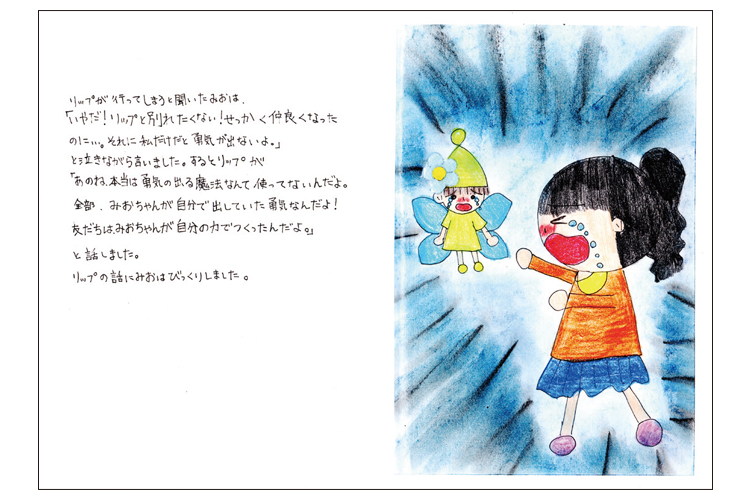 リップが行ってしまうと聞いたみおは、
「いやだ!リップと別れたくない!せっかく仲良くなった
のに…。それに私だけだと勇気が出ないよ。」
と泣きながら言いました。するとリップが
「あのね、本当は勇気の出る魔法なんて使ってないんだよ。
全部、みおちゃんが自分で出していた勇気なんだよ!
友だちは、みおちゃんが自分の力でつくったんだよ。」
と話しました。
リップの話にみおはびっくりしました。